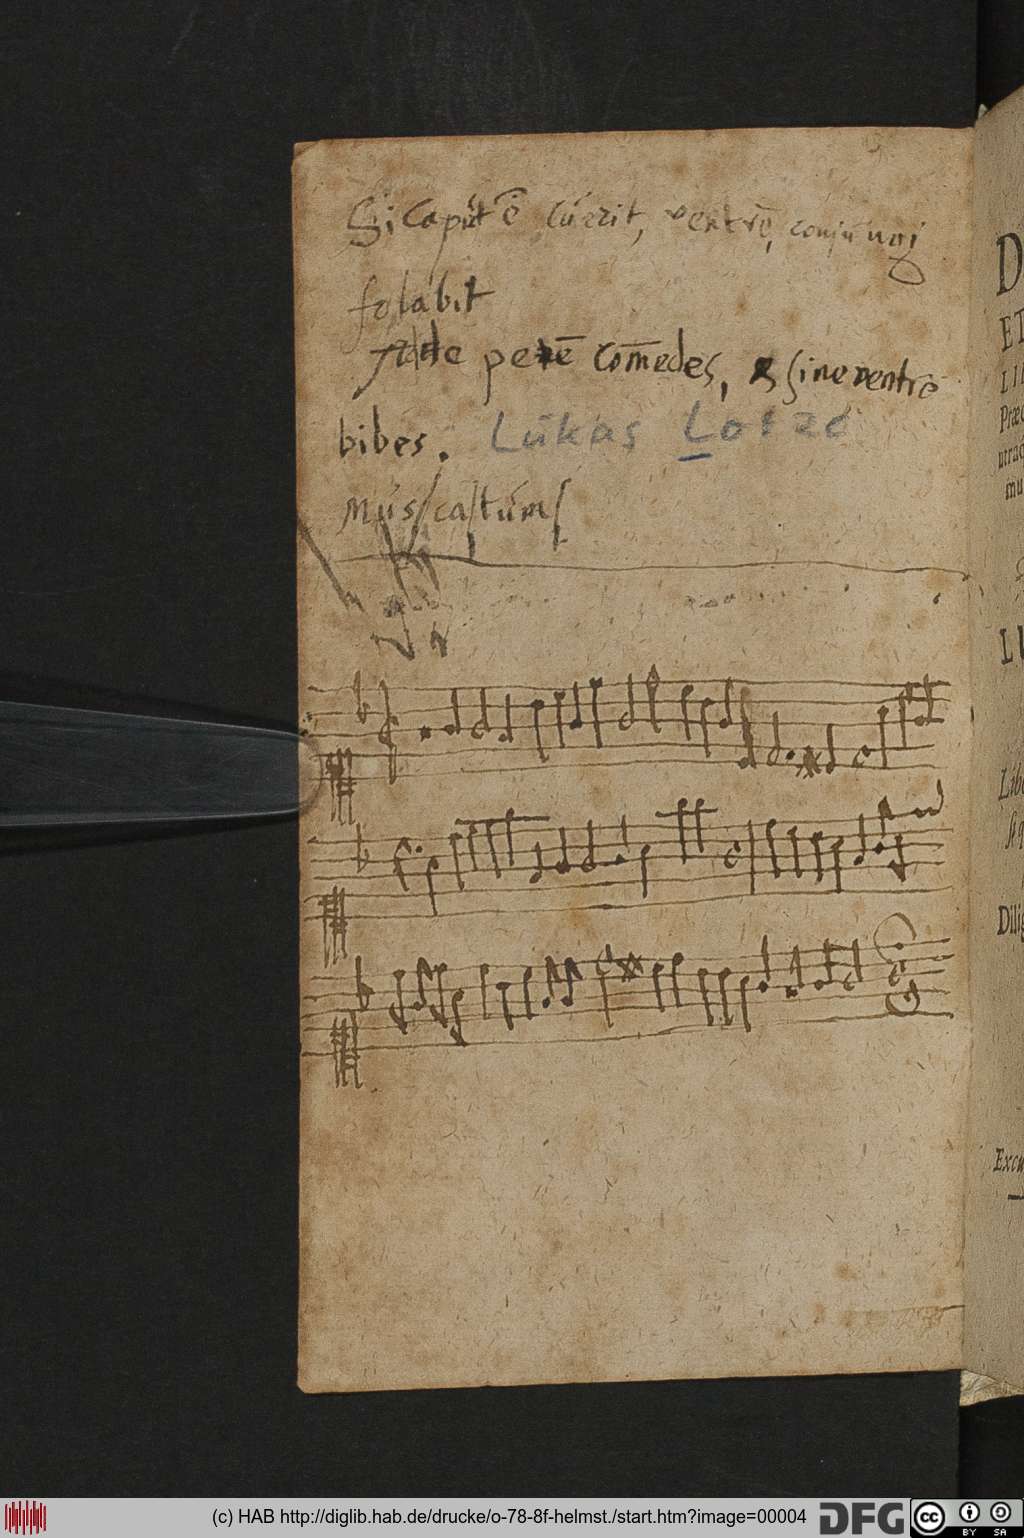 Si caput ē currit, ventrē, conjūngi
folabit
Adde pe ē com̄edes, & sine ventrē
bibes. Lukas Lotze
Musſcaſtumſ
D
ET
LI
Præc
utra
mu
LU
Libe
Dilig
Excu
(c) HAB http://diglib.hab.de/drucke/o-78-8f-helmst./start.htm?image=00004
DFG
cc
BY SA